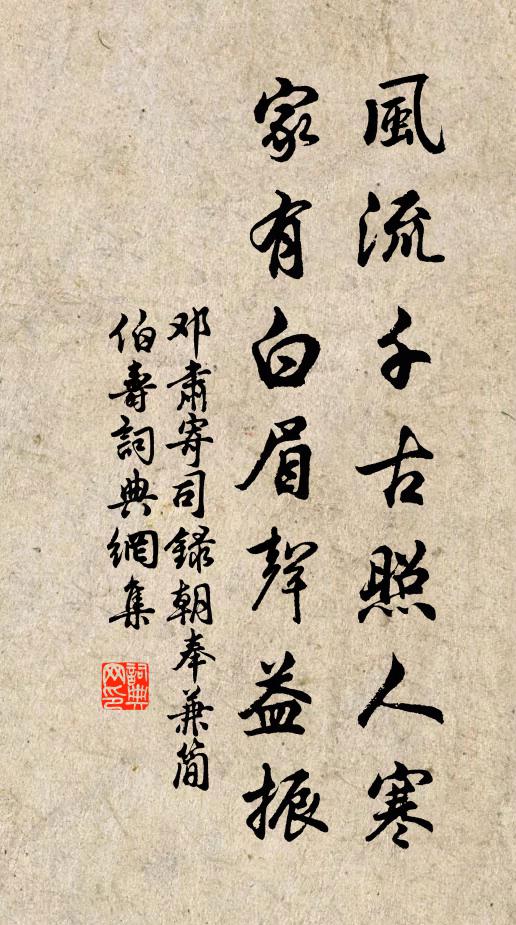 風流千古照人寒
家有白眉聲益振
邓肅寄司錄朝奉兼简
伯壽詞典網集
詞典
网印